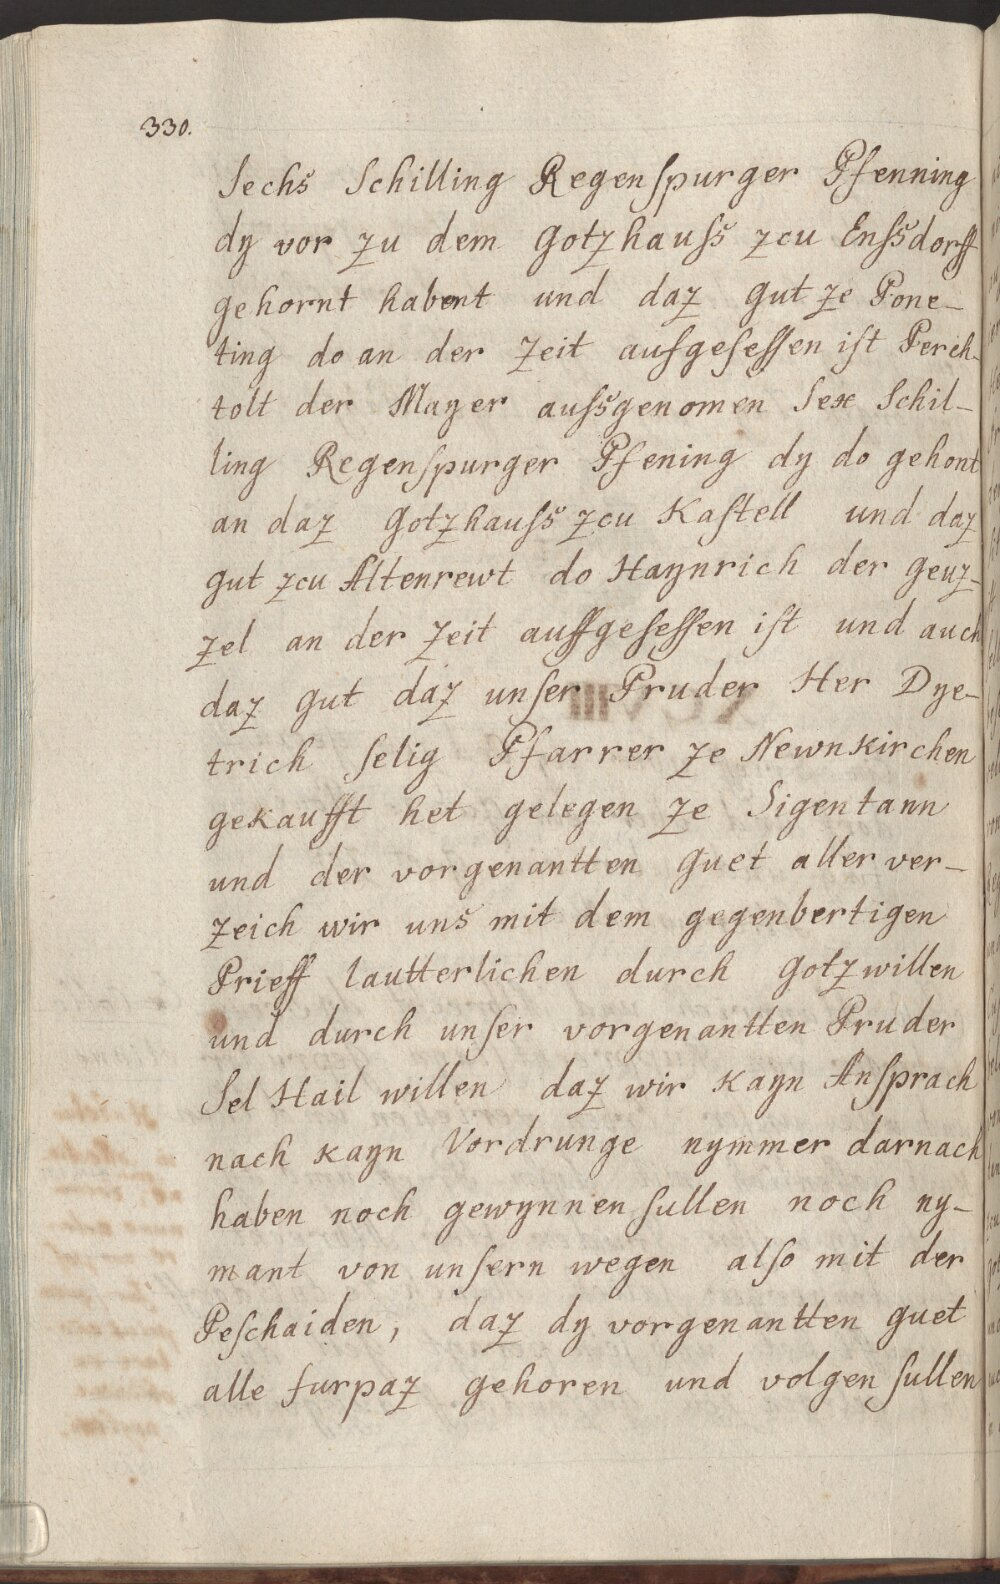 330.
Sechs Schilling Regenspurger Pfenning
dy vor zu dem Gotzhauss zcu Enssdorff
gehornt habent und daz gut ze Pone-
ting do an der Zeit aufgesessen ist Perch-
tolt der Mayer aussgenomen Sex Schil-
ling Regenspurger Pfening dy do gehont
an daz Gotzhauss zcu Kastell und daz
gut zcu Altenrewt do Haynrich der Geuz-
zel an der Zeit auffgesessen ist und auch
daz gut daz unser Pruder Her Dye-
trich selig Pfarrer ze Newnkirchen
gekaufft het gelegen ze Sigentann
und der vorgenantten Guet aller ver-
zeich wir uns mit dem gegenbertigen
Prieff lautterlichen durch Gotzwillen
und durch unser vorgenantten Pruder
Sel Hail willen daz wir kayn Ansprach
nach kayn Vordrunge nymmer darnach
haben noch gewynnen sullen noch ny-
mant von unsern wegen also mit der
Peschaiden, daz dy vorgenantten guet
alle furpaz gehoren und volgen sullen